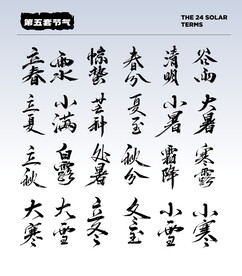 第五套节气
THE 24 SOLAR
TERMS
立春 雨水 惊蛰 春分 清明 谷雨
立夏 小满 芒种 夏至 小暑 大暑
立秋 白露 处暑 秋分 霜降 寒露
大寒 大雪 立冬 冬至 小雪 小寒